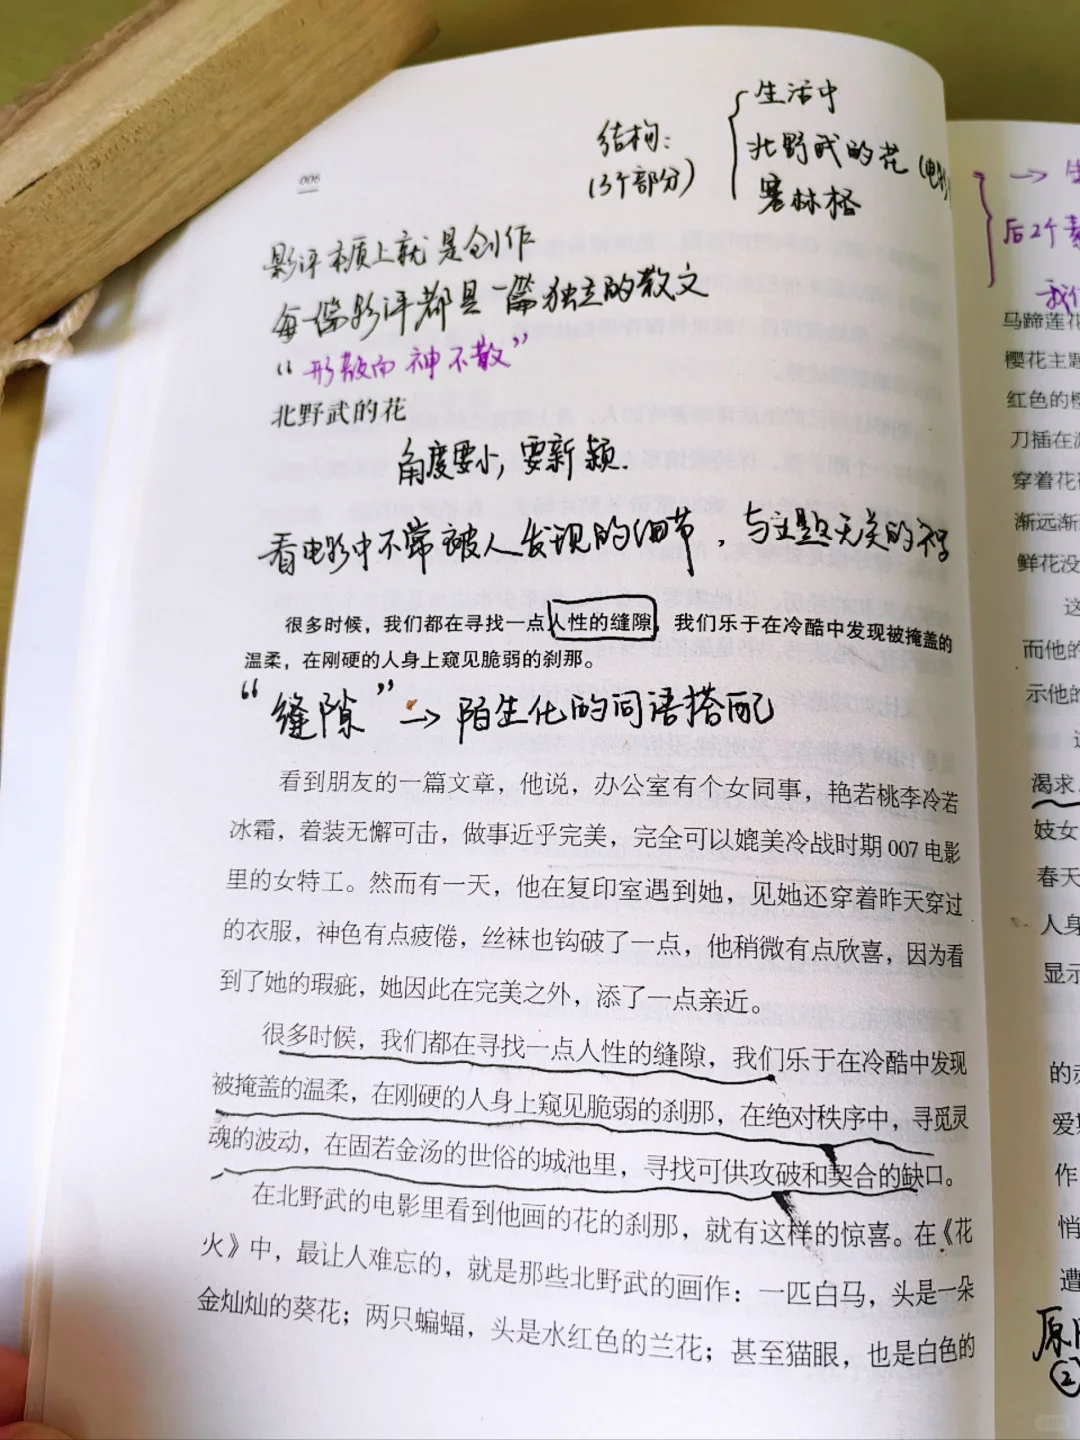 006
结构：
（3个部分）
生活中
北野武的花（电影
塞林格
影评本质上就是创作
每一篇影评都是一篇独立的散文
“形散而神不散”
北野武的花
角度要小，要新颖.
看电影中不常被人发现的细节，与主题无关的
很多时候，我们都在寻找一点人性的缝隙，我们乐于在冷酷中发现被掩盖的
温柔，在刚硬的人身上窥见脆弱的刹那。
“缝隙”→陌生化的词语搭配
看到朋友的一篇文章，他说，办公室有个女同事，艳若桃李冷若
冰霜，着装无懈可击，做事近乎完美，完全可以媲美冷战时期 007 电影
里的女特工。然而有一天，他在复印室遇到她，见她还穿着昨天穿过
的衣服，神色有点疲倦，丝袜也钩破了一点，他稍微有点欣喜，因为看
到了她的瑕疵，她因此在完美之外，添了一点亲近。
很多时候，我们都在寻找一点人性的缝隙，我们乐于在冷酷中发现
被掩盖的温柔，在刚硬的人身上窥见脆弱的刹那，在绝对秩序中，寻觅灵
魂的波动，在固若金汤的世俗的城池里，寻找可供攻破和契合的缺口。
在北野武的电影里看到他画的花的刹那，就有这样的惊喜。在《花
火》中，最让人难忘的，就是那些北野武的画作：一匹白马，头是一朵
金灿灿的葵花；两只蝙蝠，头是水红色的兰花；甚至猫眼，也是白色的
→
后2个
我们
马蹄莲花
樱花主题
红色的樱
刀插在
穿着花
渐远渐
鲜花没
这
而他的
示他的
渴求
妓女
春天
人身
显示
的
爱
作
悄
遭
原
②